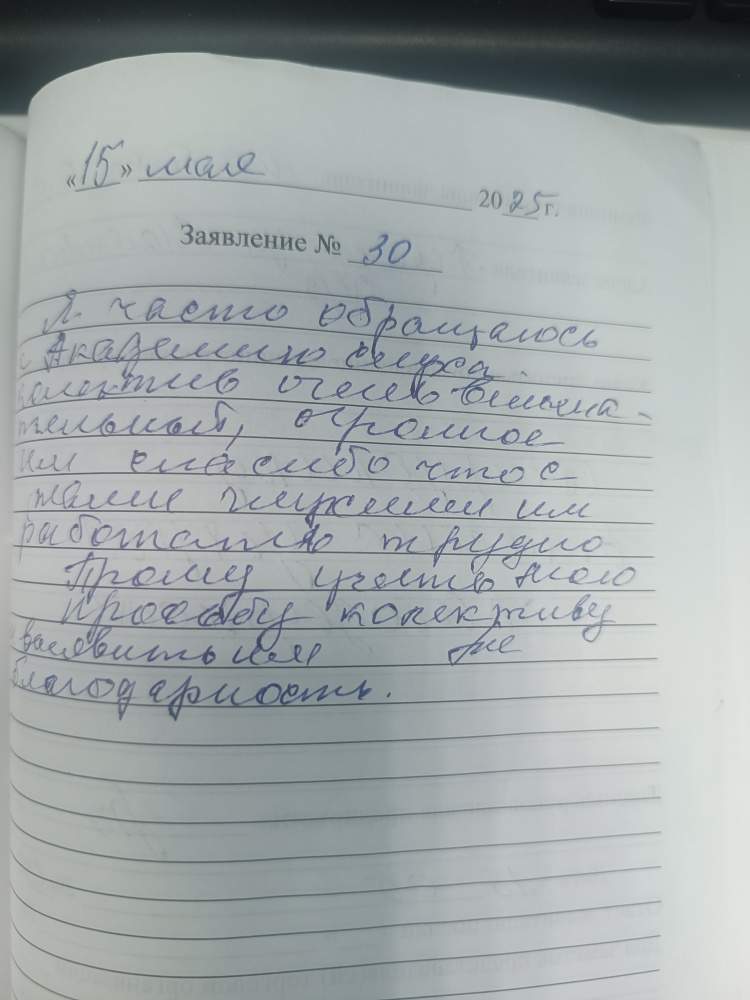 «15» мая 2025 г.
Заявление № 30
Я часто обращаюсь
с Академию слуха.
колектив очень внима-
тельный, огромное
им спасибо что с
такими глухими им
работать трудно
Прошу учесть мою
прозьбу колективу
им же
благодарность.